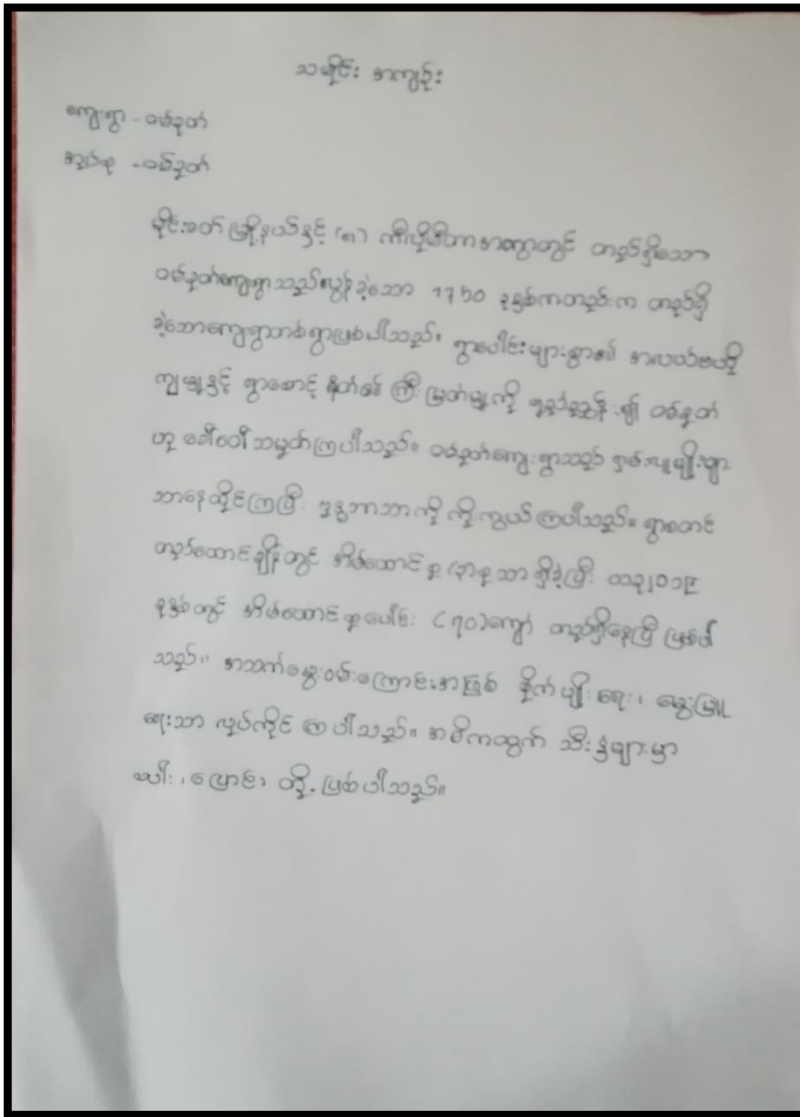 သမိုင်း အကျဉ်း
ကျေးရွာ - ဝမ်နွတ်
အုပ်စု - ဝမ်နွတ်
မိုင်းခတ်မြို့နယ်နှင့် (၈) ကီလိုမီတာအကွာတွင် တည်ရှိသော
ဝမ်နွတ်ကျေးရွာသည်လွန်ခဲ့သော ၁၇၆၀ ခုနှစ်ကတည်းက တည်ရှိ
ခဲ့သောကျေးရွာတစ်ရွာဖြစ်ပါသည်။ ရွာပေါင်းများစွာ၏ အလယ်ဗဟို
ကျမှုနှင့် ရွာစောင့် နတ်၏ ကြီးမြတ်မှုကို ရည်ညွှန်း၍ ဝမ်နွတ်
ဟု ခေါ်ဝေါ်သမုတ်ကြပါသည်။ ဝမ်နွတ်ကျေးရွာသည် ရှမ်းလူမျိုးများ
သာနေထိုင်ကြပြီး ဗုဒ္ဓဘာသာကို ကိုးကွယ်ကြပါသည်။ ရွာစတင်
တည်ထောင်ချိန်တွင် အိမ်ထောင်စု (၃)စုသာ ရှိခဲ့ပြီး ယခု၂၀၁၉
ခုနှစ်တွင် အိမ်ထောင်စုပေါင်း (၇၀)ကျော် တည်ရှိနေပြီ ဖြစ်ပါ
သည်။ အသက်မွေးဝမ်းကြောင်းအဖြစ် စိုက်ပျိုးရေး၊ မွေးမြူ
ရေးသာ လုပ်ကိုင်ကြပါသည်။ အဓိကထွက် သီးနှံများမှာ
စပါး၊ ပြောင်း တို့ဖြစ်ပါသည်။